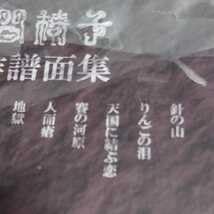 椅子
譜面集
針の山
りんごの泪
天国に結ぶ恋
賽の河原
人面瘡
地獄